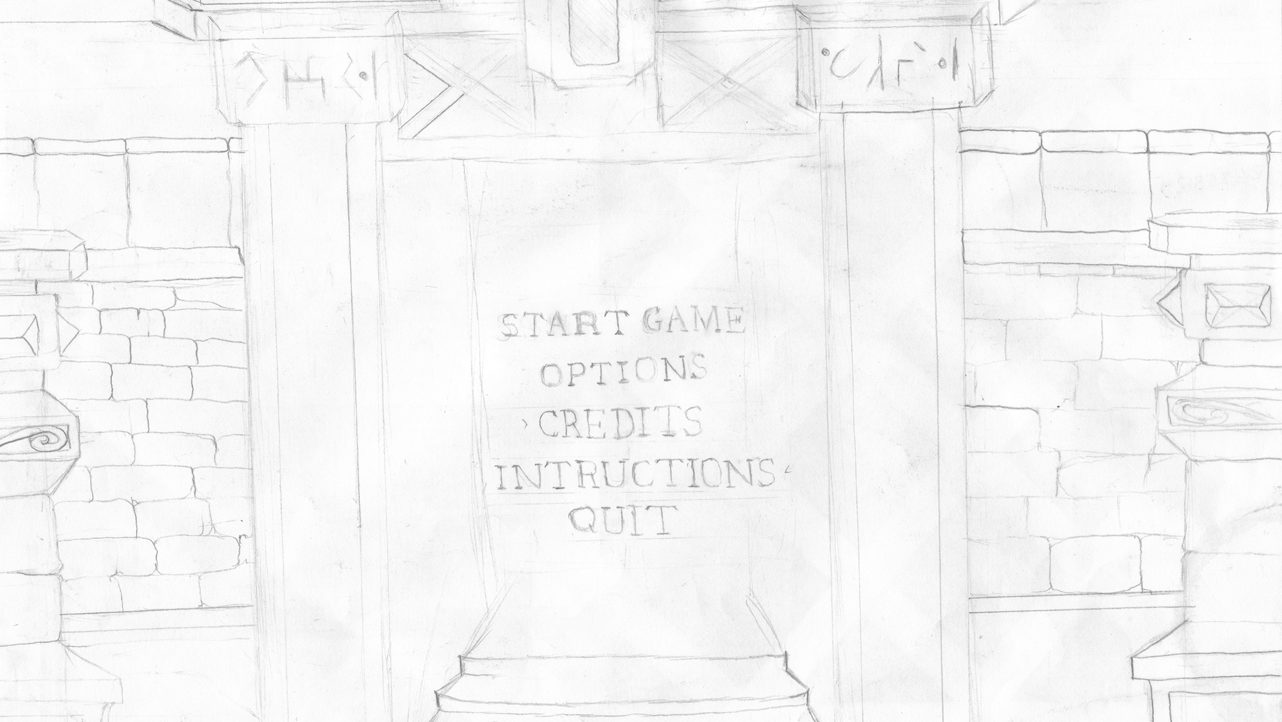 START GAME
OPTIONS
› CREDITS
INTRUCTIONS ‹
QUIT